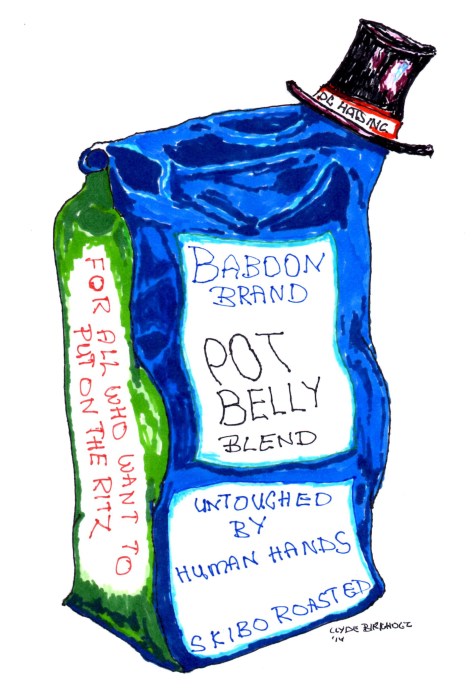 DC HATSING
BABOON
BRAND
POT
BELLY
BLEND
UNTOUCHED
BY
HUMAN HANDS
SKIBO ROASTED
FOR ALL WHO WANT TO
PUT ON THE RITZ
CLYDE BIRKHOLZ
'14